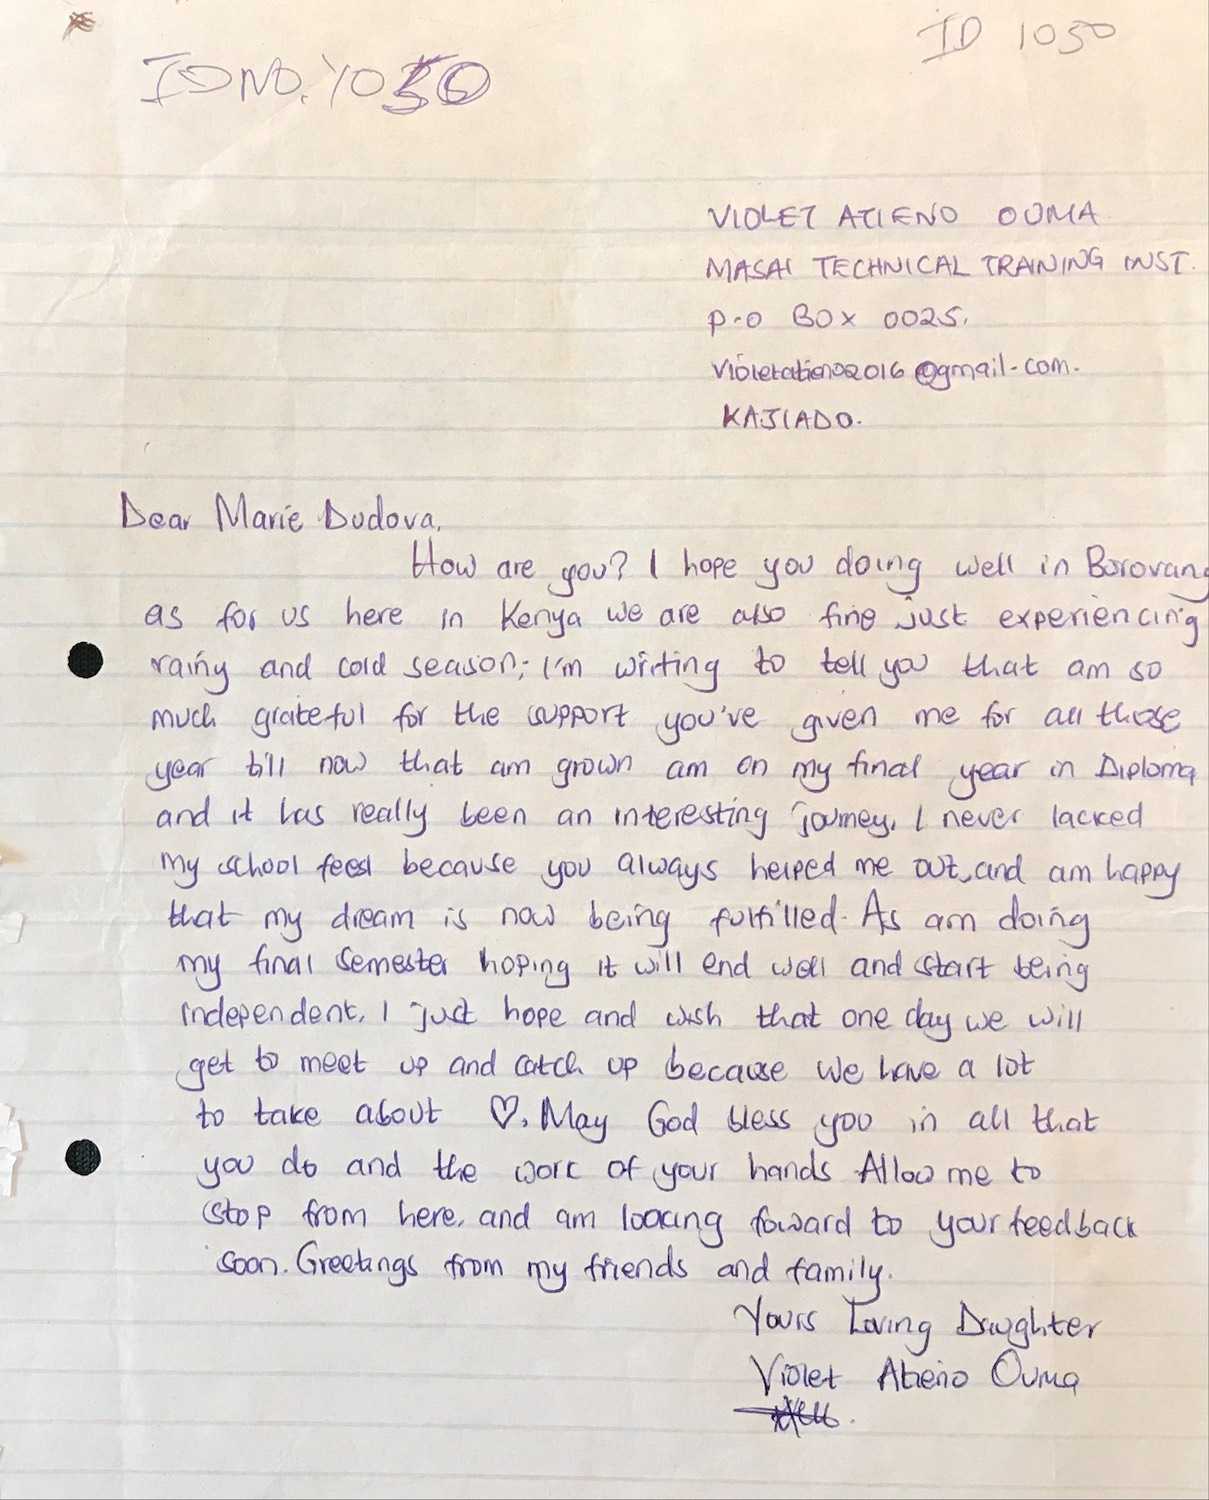 ID 1050
ID NO. 1050
VIOLET ATIENO OUMA
MASAI TECHNICAL TRAINING INST.
P.O BOX 0025.
violetatieno2016@gmail.com.
KAJIADO.
Dear Marie Dudova,
How are you? I hope you doing well in Borovany
as for us here in Kenya we are also fine just experiencing
rainy and cold season; I'm writing to tell you that am so
much grateful for the support you've given me for all those
year till now that am grown am on my final year in Diploma
and it has really been an interesting journey, I never lacked
my school fees because you always helped me out, and am happy
that my dream is now being fulfilled. As am doing
my final semester hoping it will end well and start being
independent. I just hope and wish that one day we will
get to meet up and catch up because we have a lot
to take about ♡. May God bless you in all that
you do and the work of your hands Allow me to
stop from here, and am looking foward to your feedback
soon. Greetings from my friends and family.
Yours Loving Daughter
Violet Atieno Ouma